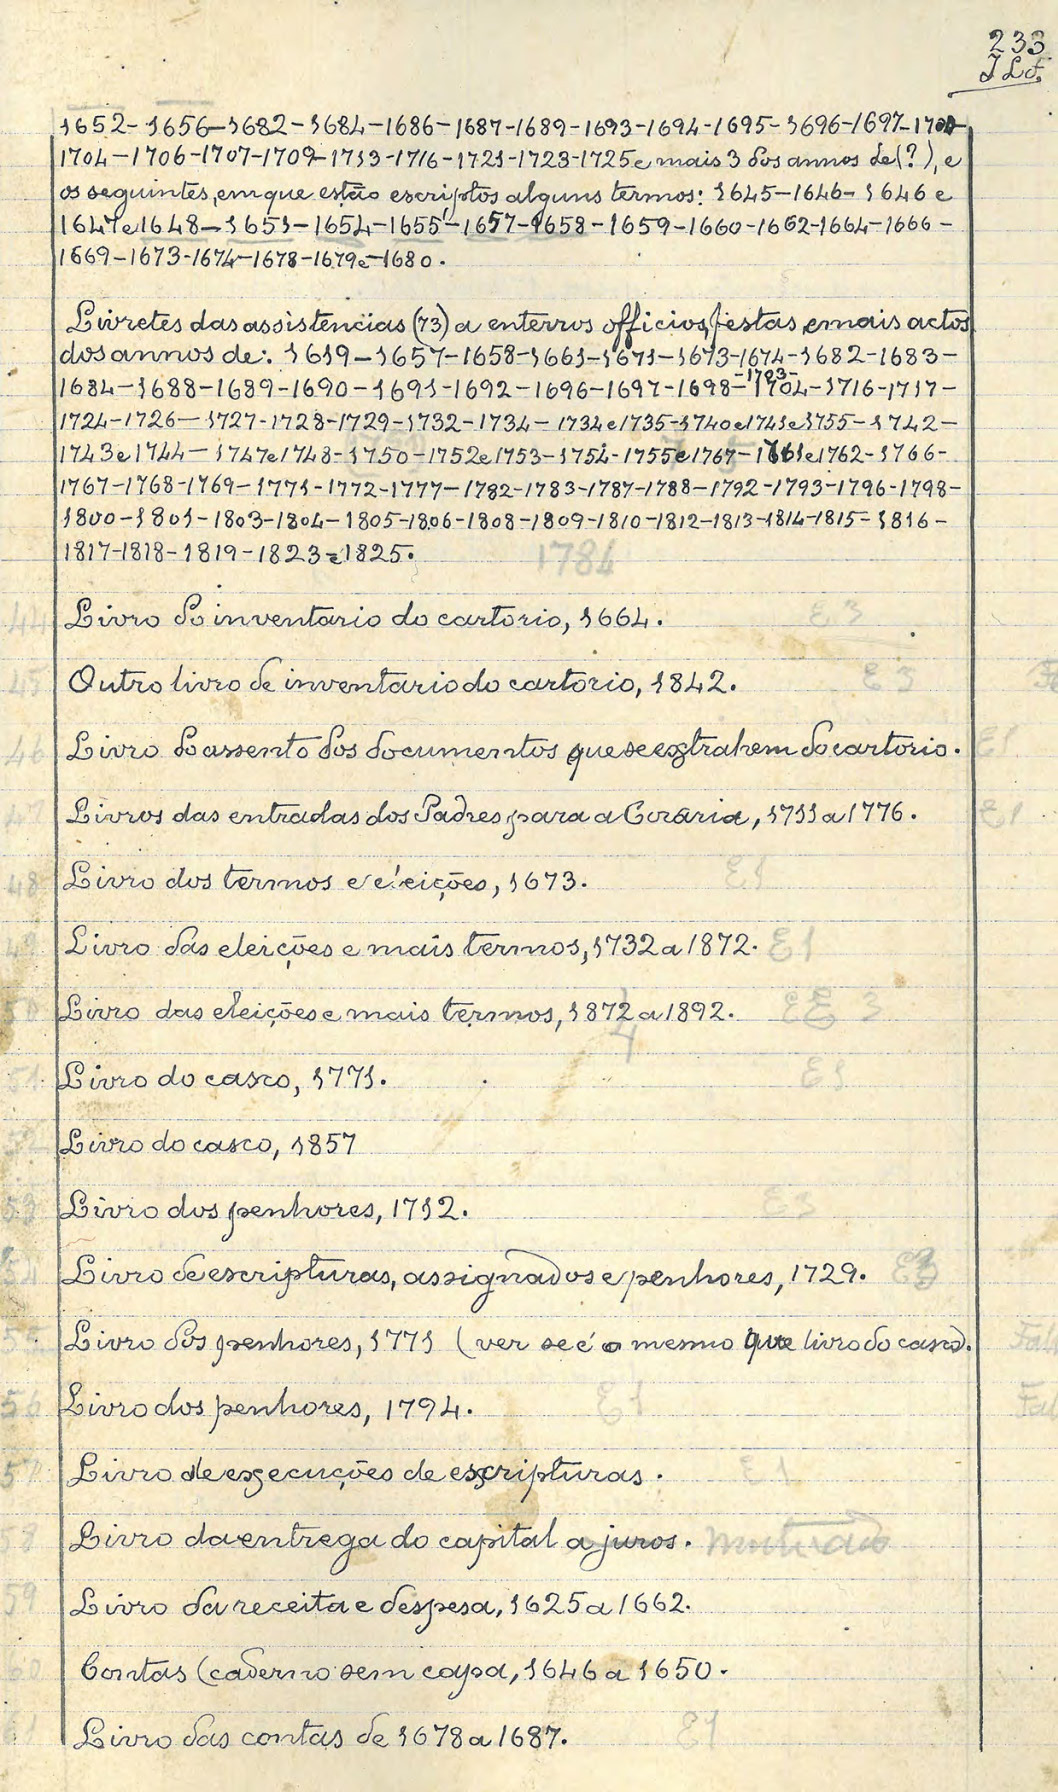 233
1652-1656-1682-1684-1686-1687-1689-1693-1694-1695-1696-1697-1700-
1704-1706-1707-1709-1713-1716-1721-1723-1725 e mais 3 dos annos de (?), e
os seguintes, em que estão escriptos alguns termos: 1645-1646-1646 e
1647 e 1648-1651-1654-1655-1657-1658-1659-1660-1662-1664-1666-
1669-1673-1674-1678-1679 e 1680.
Livretes das assistencias (73) a enterros officios, festas, e mais actos
dos annos de: 1619-1657-1658-1661-1671-1673-1674-1682-1683-
1684-1688-1689-1690-1691-1692-1696-1697-1698-1703-1704-1716-1717-
1724-1726-1727-1728-1729-1732-1734-1734 e 1735-1740 e 1741 e 1755-1742-
1743 e 1744-1747 e 1748-1750-1752 e 1753-1754-1755 e 1767-1761 e 1762-1766-
1767-1768-1769-1771-1772-1777-1782-1783-1787-1788-1792-1793-1796-1798-
1800-1801-1803-1804-1805-1806-1808-1809-1810-1812-1813-1814-1815-1816-
1817-1818-1819-1823 e 1825. 1784
44 Livro do inventario do cartorio, 1664. E3
45 Outro livro de inventario do cartorio, 1842. E3
46 Livro do assento dos documentos que se extrahem do cartorio. E1
47 Livros das entradas dos Padres para a Coraria, 1711 a 1776. E1
48 Livro dos termos e eleições, 1673. E1
49 Livro das eleições e mais termos, 1732 a 1872. E1
50 Livro das eleições e mais termos, 1872 a 1892. E 3
51 Livro do casco, 1771. E1
52 Livro do casco, 1857
53 Livro dos penhores, 1712. E3
54 Livro de escripturas, assignados e penhores, 1729. E3
55 Livro dos penhores, 1771 (ver se é o mesmo que livro do casco).
56 Livro dos penhores, 1794. E1
57 Livro de execuções de escripturas. E1
58 Livro da entrega do capital a juros.
59 Livro da receita e despesa, 1625 a 1662.
60 Contas (caderno sem capa, 1646 a 1650.
61 Livro das contas de 1678 a 1687. E1